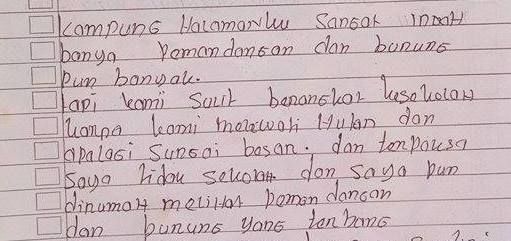 kampung Halamanku Sangat indah
banya Pemandangan dan burung
Pun banyak.
tapi kami Sulit berangkat kesekolah
karna kami melewati Hutan dan
apalagi Sungai besar. dan terpaksa
Saya tidak sekolah dan saya pun
dirumah melihat pemandangan
dan burung yang terbang